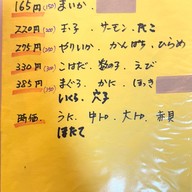 165円(150) まいか.
220円(200) 玉子. サーモン. たこ
275円(250) やりいか. かんぱち. ひらめ
330円(300) こはだ. 数の子. えび
385円(350) まぐろ. かに. ほっき
いくら. 穴子
時価. うに. 中トロ. 大トロ. 赤貝
ほたて